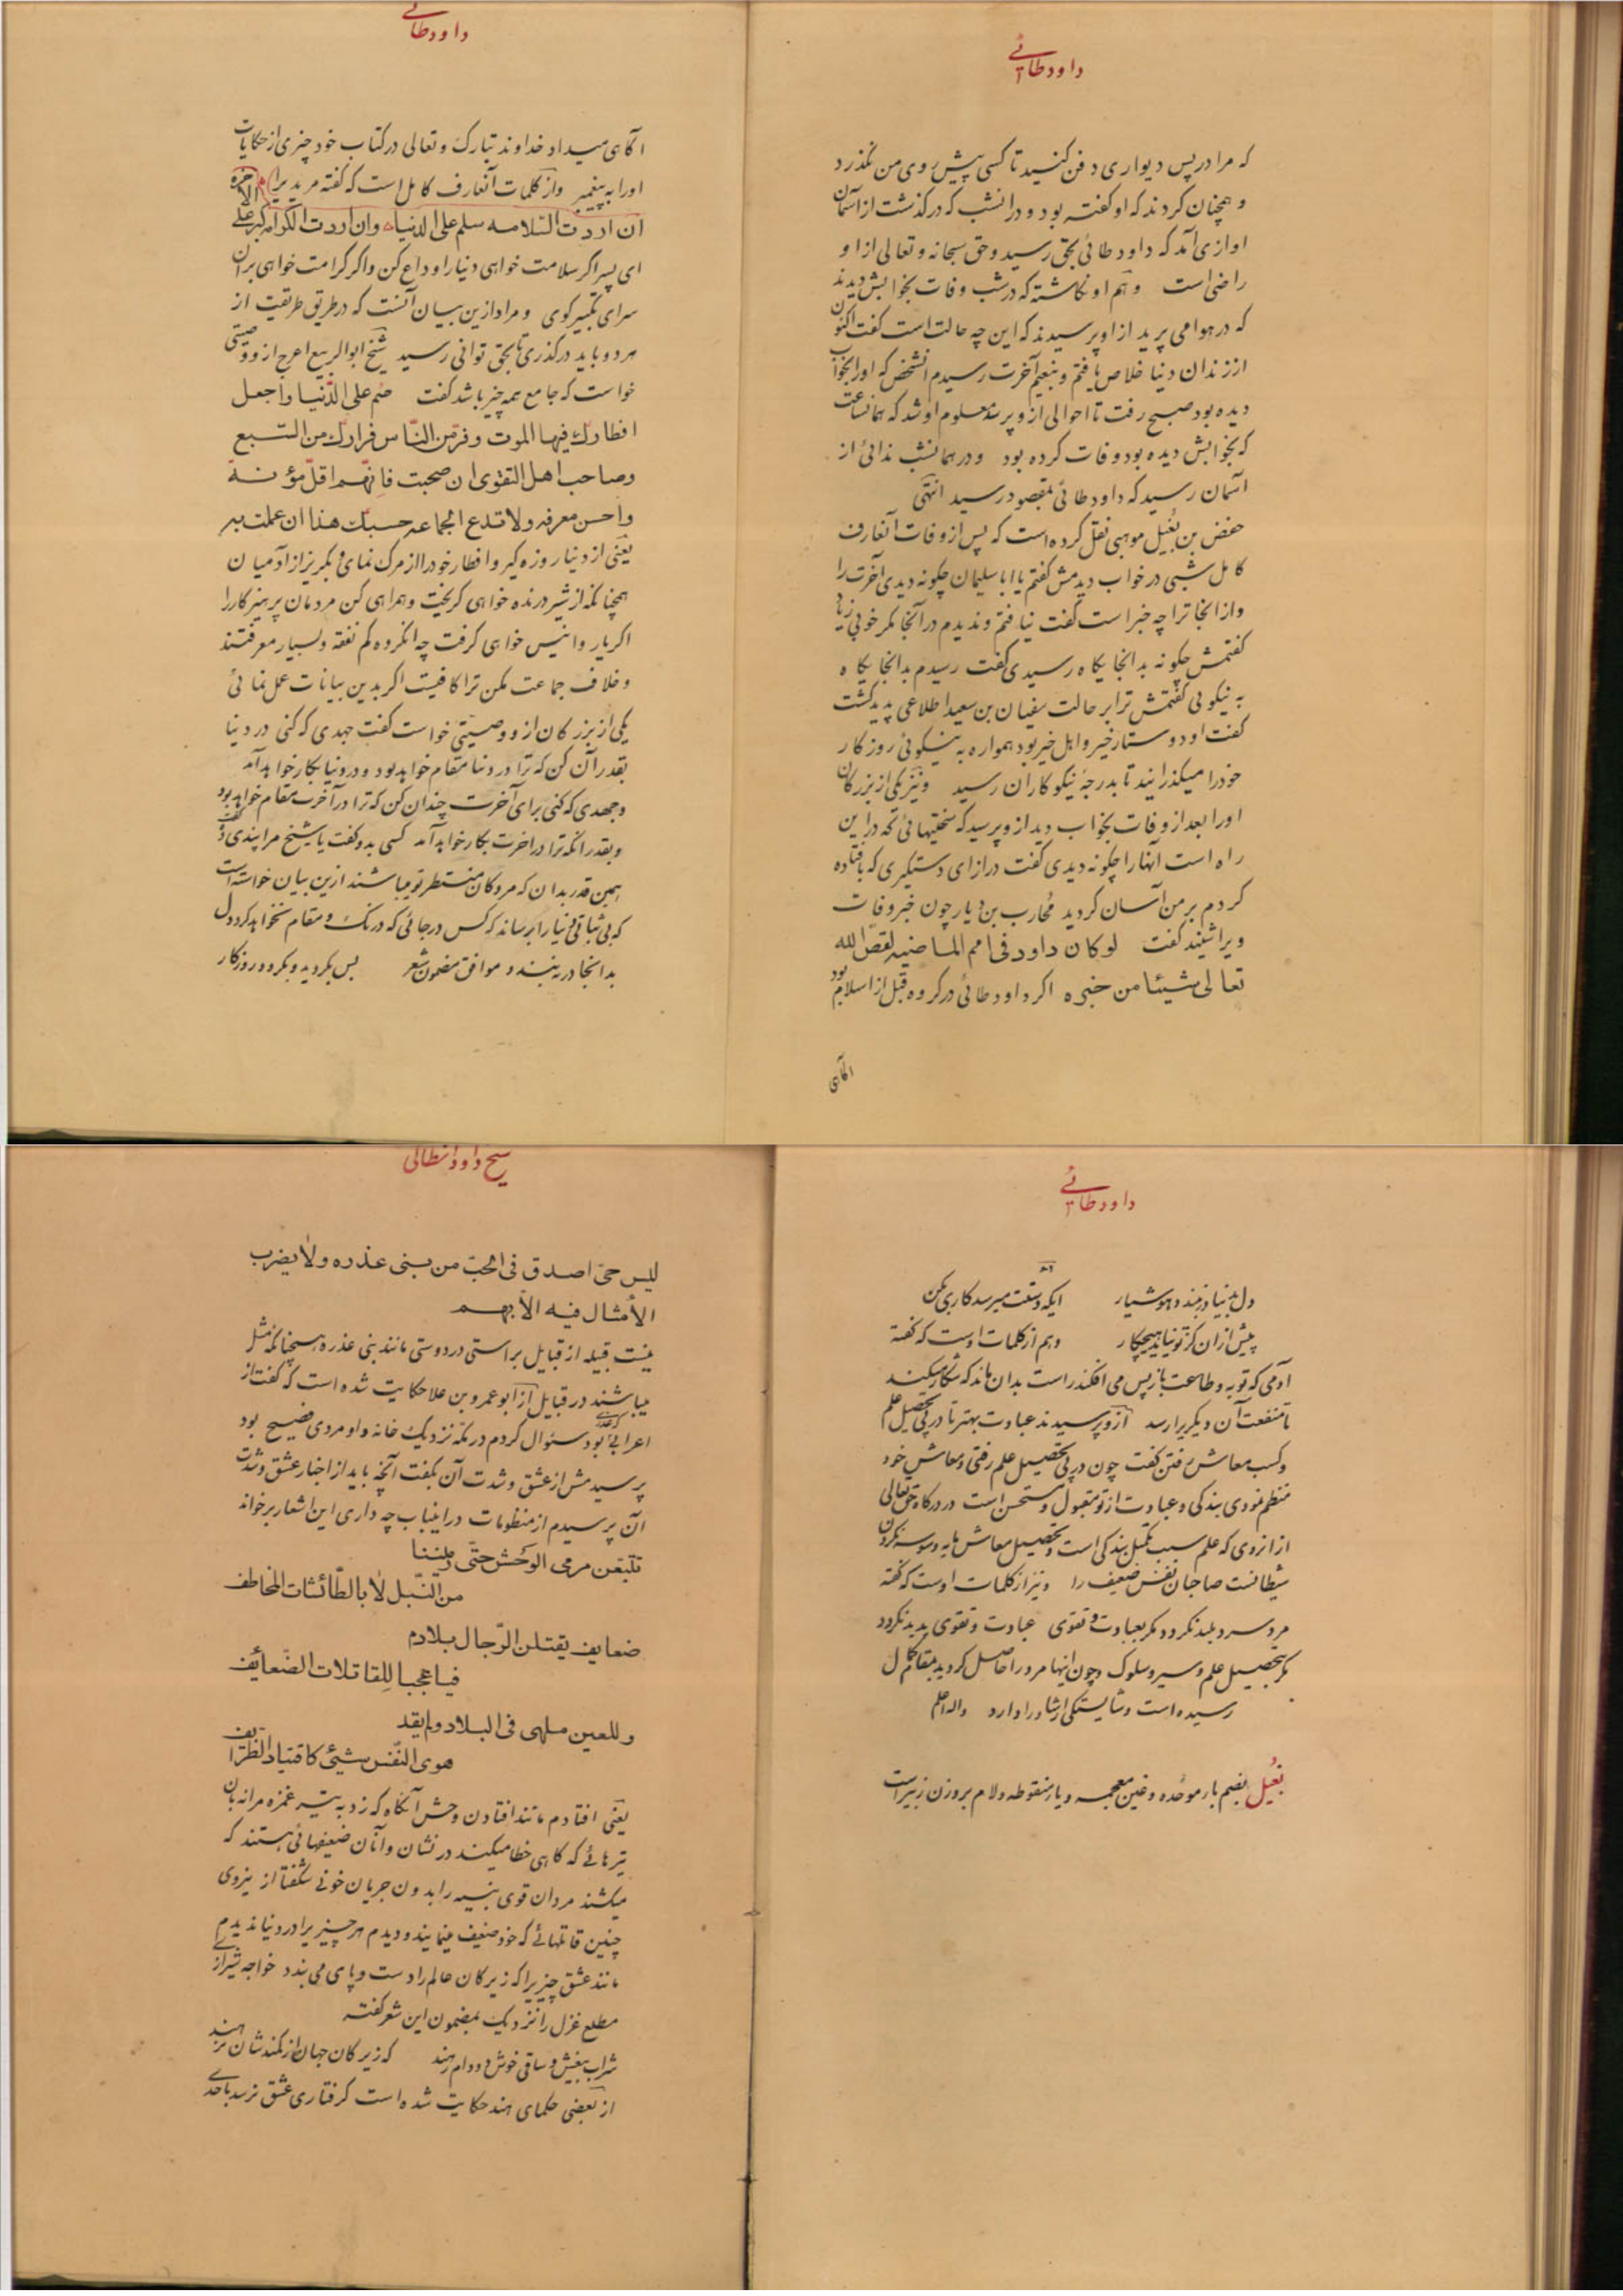 داود طائی
که مرا در پس دیواری دفن کنید تا کسی پیش روی من نگذرد
و همچنان کردند که او گفته بود و در انشب که در گذشت از آسمان
اوازی آمد که داود طائی بحق رسید و حق سبحانه و تعالی از او
راضی است و هم او نکاشته که در شب وفات بخوابش دیدند
که در هوا می پرید از او پرسیدند که این چه حالت است گفت اکنون
از زندان دنیا خلاص یافتم و بنعیم آخرت رسیدم انشخص که اورا بخواب
دیده بود صبح رفت تا احوالی از و پرسد معلوم او شد که همانساعت
که بخوابش دیده بود وفات کرده بود و در همانشب ندائی از
آسمان رسید که داود طائی بمقصود رسید انتهی
حفض بن بُغَیل موهبی نقل کرده است که پس از وفات آنعارف
کامل شبی در خواب دیدمش گفتم یا ابا سلیمان چگونه دیدی آخرت را
و از انجا ترا چه خبر است گفت نیافتم و ندیدم در آنجا مکر خوبی زیاد
گفتمش چگونه بدانجایگاه رسیدی گفت رسیدم بدانجایگاه
به نیکوئی گفتمش ترا بر حالت سفیان بن سعید اطلاعی پدید گشت
گفت او دوستار خیر و اهل خیر بود همواره به نیکوئی روزکار
خودرا میگذرانید تا بدرجهٔ نیکوکاران رسید و نیز یکی از بزرکان
اورا بعد از وفات بخواب دید از و پرسید که سختیهائی که در این
راه است آنها را چگونه دیدی گفت در ازای دستگیری که بافتاده
کردم بر من آسان کردید محارب بن دیار چون خبر وفات
ویرا شنید گفت لو کان داود فی امم الماضیه لقصّ الله
تعالی شیئا من خبره اکر داود طائی در کروه قبل از اسلام بود
آکاهی
داود طائی
آکاهی میداد خداوند تبارک و تعالی در کتاب خود چیزی از حکایات
اورا به پیغمبر و از کلمات آنعارف کامل است که گفته مریدیرا
ان اردت السّلامه سلم علی الدنیا و ان اردت الکرامه کبر علی الآخره
ای پسر اگر سلامت خواهی دنیا را وداع کن و اکر کرامت خواهی بر آن
سرای تکبیر کوی و مراد ازین بیان آنست که در طریق طریقت از
هر دو باید در گذری تا بحق توانی رسید شیخ ابو الربیع اعرج از و وصیتی
خواست که جامع همه چیز باشد گفت صُم علی الدّنیا و اجعل
افطارک فیها الموت و فرّ من النّاس فرارک من السّبع
و صاحب اهل التقوی ان صحبت فانّهم اقلّ مؤنة
و احسن معرفه و لا تدع الجماعه حسبک هذا ان عملت به
یعنی از دنیا روزه گیر و افطار خودرا از مرک نمای و بگریز از آدمیان
همچنانکه از شیر درنده خواهی گریخت و همراهی کن مردمان پرهیزکاررا
اکر یار و انیس خواهی گرفت چه انکروه کم نفقه و بسیار معرفتند
و خلاف جماعت مکن ترا کافیست اگر بدین بیانات عمل نمائی
یکی از بزرکان از و وصیتی خواست گفت جهدی که کنی در دنیا
بقدر آن کن که ترا در دنیا مقام خواهد بود و در دنیا بکار خواهد آمد
و جهدی که کنی برای آخرت چندان کن که ترا در آخرت مقام خواهد بود
و بقدر انکه ترا در اخرت بکار خواهد آمد کسی بدو گفت یا شیخ مرا پندی ده گفت
همین قدر بدان که مردکان منتظر تو میباشند ازین بیان خواسته است
که بی ثباتی دنیا را برساند که کس در جائی که درنک و مقام نخواهد کرد دل
بدانجا در نه بندد و موافق مضمون شعر بس بگردید و بگردد روزکار
داود طائی
دل بدنیا در نبندد هوشیار ایکه دستت میرسد کاری بکن
پیش از ان کز تو نیاید هیچکار و هم از کلمات اوست که گفته
آدمی که توبه و طاعت باز پس می افکند راست بدان ماند که شکار میکند
تا منفعت آن دیگریرا رسد از و پرسیدند عبادت بهتر تا در پی تحصیل علم
و کسب معاش رفتن گفت چون در پی تحصیل علم رفتی و معاش خود
منتظم نمودی بندکی و عبادت از تو مقبول و مستحسن است در درکاه حق تعالی
از انروی که علم سبب تکمیل بندکی است و تحصیل معاش مایه وسوسه نکردن
شیطانست صاحبان نفس ضعیف را و نیز از کلمات اوست که گفته
مرد سربلند نکردد مکر بعبادت و تقوی عبادت و تقوی پدید نکردد
مکر بتحصیل علم و سیر و سلوک و چون اینها مرد را حاصل کردید بمقام کمال
رسیده است و شایستکی ارشاد را دارد والله اعلم
بُغَیل بضم باء موحّده و غین معجمه و یاء منقوطه و لام بر وزن زبیر است
شیخ داود انطاکی
لیس حیّ اصدق فی الحبّ من بنی عذره و لا یضرب
الأمثال فیه الاّ بهم
نیست قبیله از قبایل براستی در دوستی مانند بنی عذره همچنانکه مثل
میباشند در قبایل از ابو عمرو بن علا حکایت شده است که گفت از
اعرابی که بود سئوال کردم در مکه نزدیک خانه و او مردی فصیح بود
پرسیدمش از عشق و شدت آن بگفت آنچه باید از اخبار عشق و شدت
آن پرسیدم از منظومات در اینباب چه داری این اشعار برخواند
تتبّعن مرمی الوحش حتّی رمیننا
من النّبل لا بالطّائشات الخاطف
ضعایف یقتلن الرّجال بلا دم
فیا عجبا للقاتلات الضّعائف
و للعین ملهی فی البلاد و لم یقد
هوی النّفس شیئ کاقتیاد الظّرایف
یعنی افتادم مانند افتادن وحش آنگاه که زد به تیر غمزه مرا نه بان
تیرهائی که کاهی خطا میکنند در نشان و آنان ضعیفهائی هستند که
میکشند مردان قوی بنیه را بدون جریان خونی شگفتا از نیروی
چنین قاتلهائی که خود ضعیف مینمایند و دیدم هر چیزیرا در دنیا ندیدم
مانند عشق چیزیرا که زیرکان عالم را دست و پای می بندد خواجه شیرازی
مطلع غزل را نزدیک بمضمون این شعر گفته
شراب بیغش و ساقی خوش دو دام رهند که زیرکان جهان از کمندشان نرهند
از بعضی حکمای هند حکایت شده است گرفتاری عشق نرسد باحدی